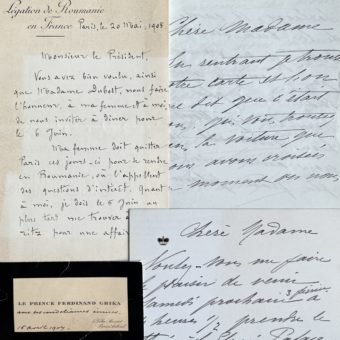 Légation de Roumanie
en France
Paris, le 20 Mai, 1908
Monsieur le Président,
Vous avez bien voulu, ainsi
que Madame Dubost, nous faire
l'honneur, à ma femme et à moi
de nous inviter à dîner pour
le 6 Juin.
Ma femme doit quitter
Paris ces jours-ci pour se rendre
en Roumanie, où l'appellent
des questions d'intérêt. Quant
à moi, je dois le 6 Juin au
plus tard me trouver
pour une affai
Chère Madame
rentrant je trouve
votre carte et l'on
me dit que c'était
la voiture que
nous avons croisée
moment où nous
Chère Madame
Voulez-vous me faire
le plaisir de venir
Samedi prochain 3
à
heures 1/2 prendre le
LE PRINCE FERDINAND GHIKA
avec ses condoléances émues.
15 avril 1904